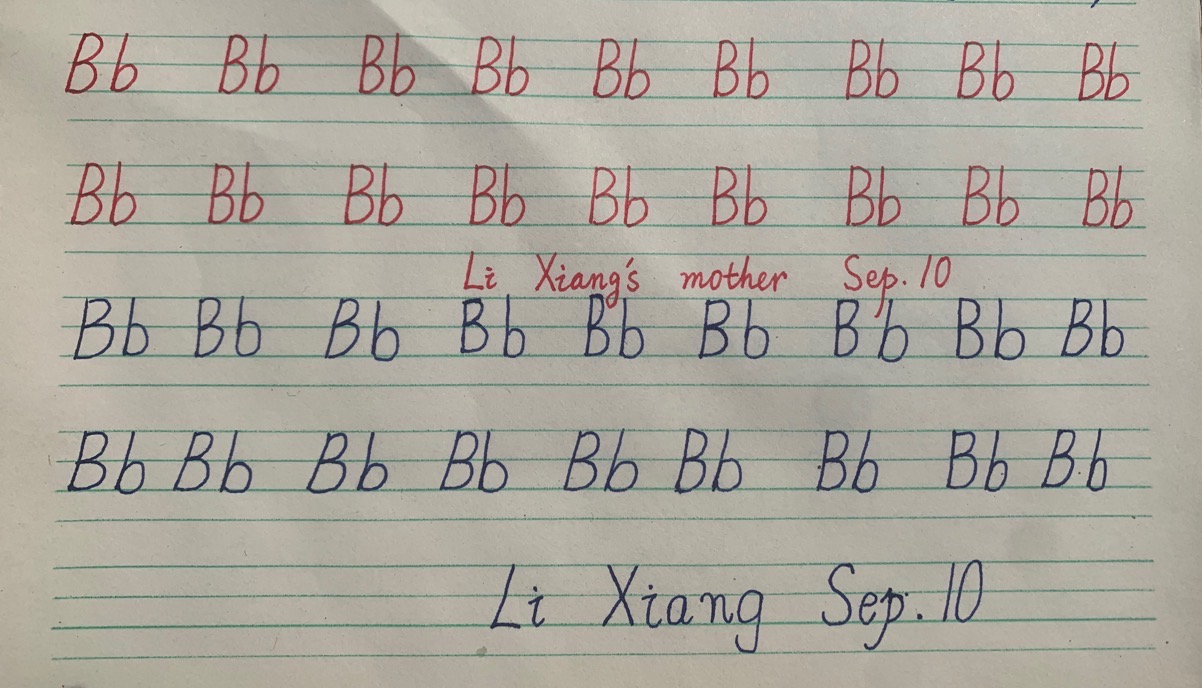 Bb Bb Bb Bb Bb Bb Bb Bb Bb
Bb Bb Bb Bb Bb Bb Bb Bb Bb
Li Xiang's mother Sep. 10
Bb Bb Bb Bb Bb Bb Bb Bb Bb
Bb Bb Bb Bb Bb Bb Bb Bb Bb
Li Xiang Sep. 10